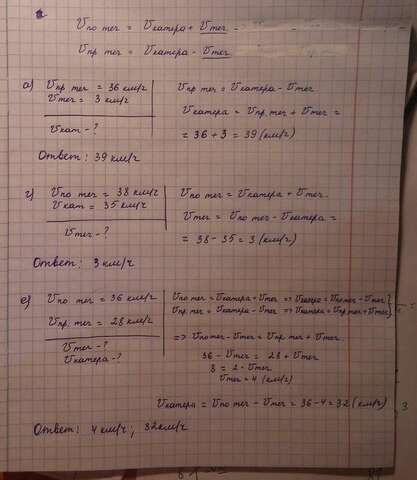 Vпо теч = Vкатера + Vтеч
Vпр теч = Vкатера - Vтеч
а) Vпр теч = 36 км/ч
Vтеч = 3 км/ч
Vкат - ?
Vпр теч = Vкатера - Vтеч
Vкатера = Vпр теч + Vтеч =
= 36 + 3 = 39 (км/ч)
Ответ: 39 км/ч
г) Vпо теч = 38 км/ч
Vкат = 35 км/ч
Vтеч - ?
Vпо теч = Vкатера + Vтеч
Vтеч = Vпо теч - Vкатера =
= 38 - 35 = 3 (км/ч)
Ответ: 3 км/ч
е) Vпо теч = 36 км/ч
Vпр. теч = 28 км/ч
Vтеч - ?
Vкатера - ?
Vпо теч = Vкатера + Vтеч => Vкатера = Vпо теч - Vтеч
Vпр теч = Vкатера - Vтеч => Vкатера = Vпр теч + Vтеч
=> Vпо теч - Vтеч = Vпр теч + Vтеч
36 - Vтеч = 28 + Vтеч
8 = 2 · Vтеч
Vтеч = 4 (км/ч)
Vкатера = Vпо теч - Vтеч = 36 - 4 = 32 (км/ч)
Ответ: 4 км/ч; 32 км/ч